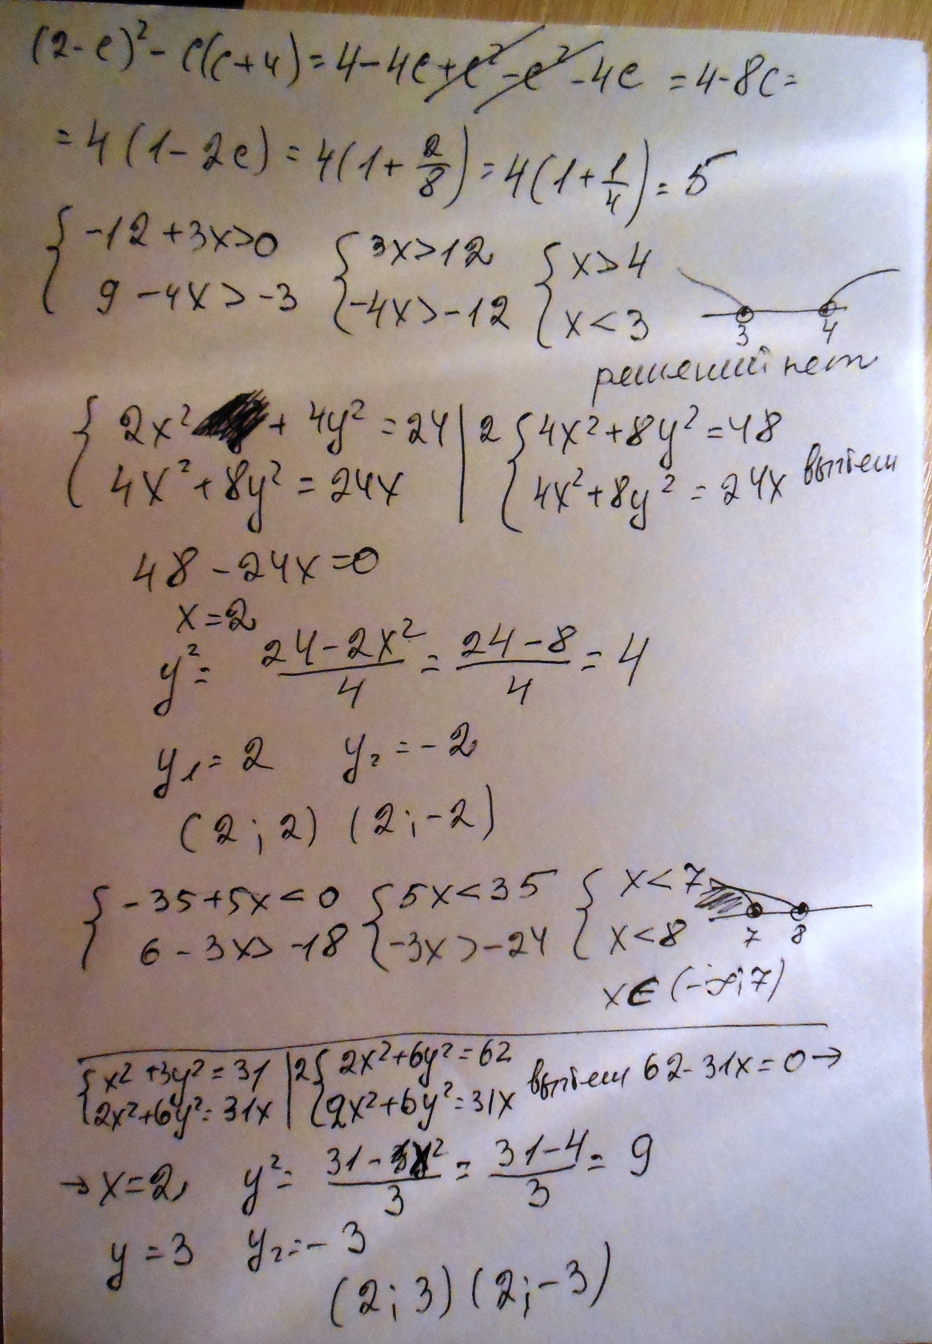 (2-c)² - c(c+4) = 4-4c+c²-c²-4c = 4-8c=
=4(1-2c) = 4(1+2/8) = 4(1+1/4) = 5
{ -12+3x>0 { 3x>12 { x>4
9-4x>-3 -4x>-12 x<3 3 4
решений нет
{ 2x² + 4y² = 24 | 2 { 4x²+8y² = 48
4x²+8y² = 24x | 4x²+8y² = 24x вычтем
48-24x=0
x=2
y² = (24-2x²)/4 = (24-8)/4 = 4
y₁=2 y₂=-2
(2;2) (2;-2)
{ -35+5x<0 { 5x<35 { x<7
6-3x>-18 -3x>-24 x<8 7 8
x∈(-∞;7)
{ x²+3y²=31 | 2 { 2x²+6y²=62
2x²+6y²=31x | 2x²+6y²=31x вычтем 62-31x=0→
→x=2, y² = (31-x²)/3 = (31-4)/3 = 9
y=3 y₂=-3
(2;3) (2;-3)